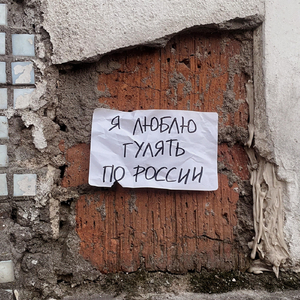 Я ЛЮБЛЮ
ГУЛЯТЬ
ПО РОССИИ